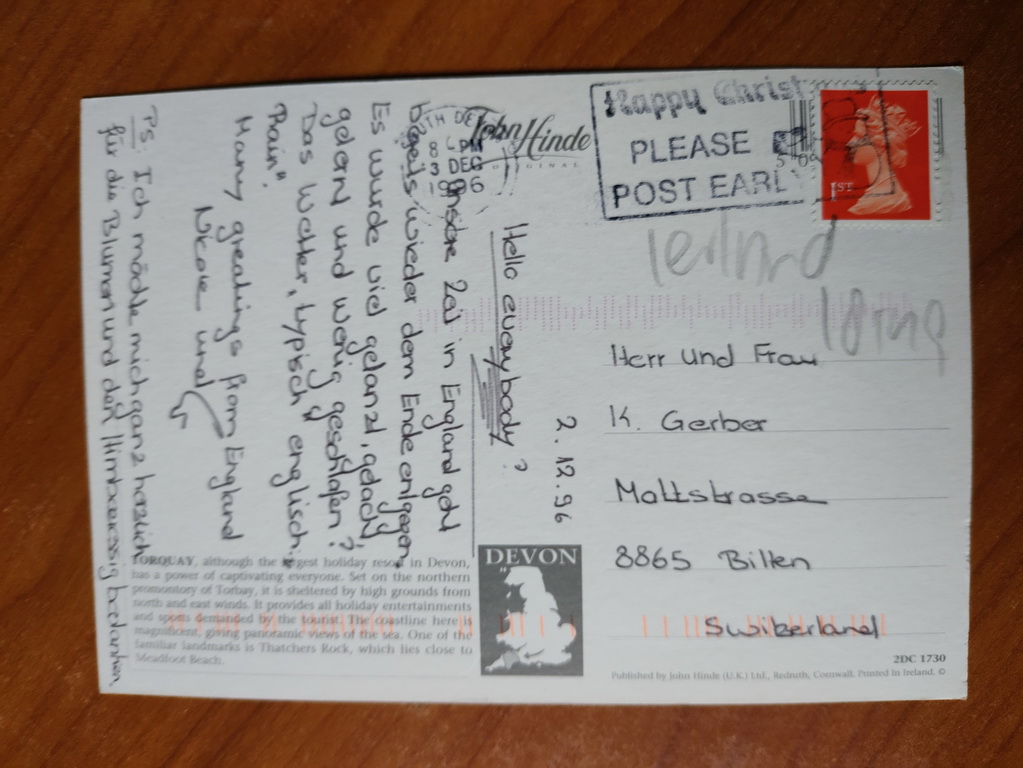 2.12.96
Hello everybody?
Unsere Zeit in England geht
bereits wieder dem Ende entgegen
Es wurde viel getanzt, gelacht,
gelernt und wenig geschlafen?
Das Wetter, typisch" englisch:
Rain".
Many greetings from England
Nicole und
Ps: Ich möchte mich ganz herzlich
für die Blumen und den Himbeeressig bedanken.
John Hinde
ORIGINAL
Happy Christ
PLEASE
POST EARL
1ST
1996
Herr und Frau
K. Gerber
Maltstrasse
8865 Bilten
Switzerland
DEVON
TORQUAY, although the largest holiday resort in Devon,
has a power of captivating everyone. Set on the northern
promontory of Torbay, it is sheltered by high grounds from
north and east winds. It provides all holiday entertainments
and sports demanded by the tourist. The coastline here is
magnificent, giving panoramic views of the sea. One of the
familiar landmarks is Thatchers Rock, which lies close to
Meadfoot Beach.
2DC 1730
Published by John Hinde (U.K.) Ltd., Redruth, Cornwall. Printed in Ireland. ©